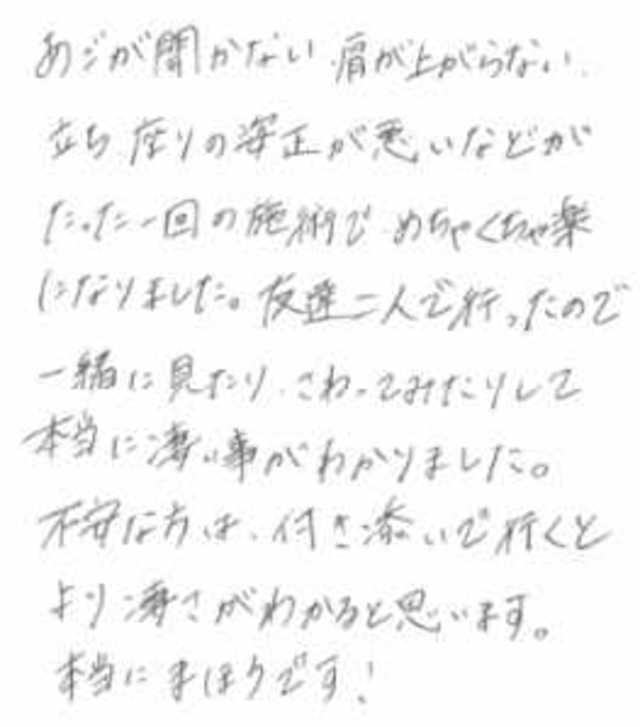 あゴが開かない、肩が上がらない、
立ち座りの姿正が悪いなどが
たった一回の施術で、めちゃくちゃ楽
になりました。友達二人で行ったので
一緒に見たり、さわってみたりして
本当に凄い事がわかりました。
不安な方は、付き添いで行くと
より凄さがわかると思います。
本当にまほうです!